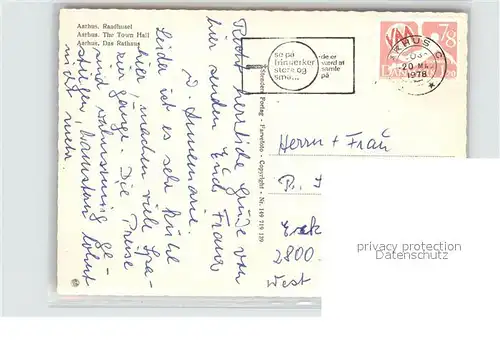 Aarhus, Raadhuset
Aarhus, The Town Hall
Aarhus, Das Rathaus
se på
frimærker
store og
små...
de er
værd at
samle
på
AARHUS C
20
1978
78
DANMARK
120
Stenders Forlag - Farvefoto - Copyright - Nr. 149 719 139
herzliche Grüße von
hier senden Euch Franz
u. Annemarie.
Leider ist es sehr kühl
hier, machen viele Spa-
ziergänge. Die Preise
sind wahnsinnig ge-
stiegen, tanken lohnt
nicht mehr.
Herrn + Frau
2800
West
privacy protection
Datenschutz